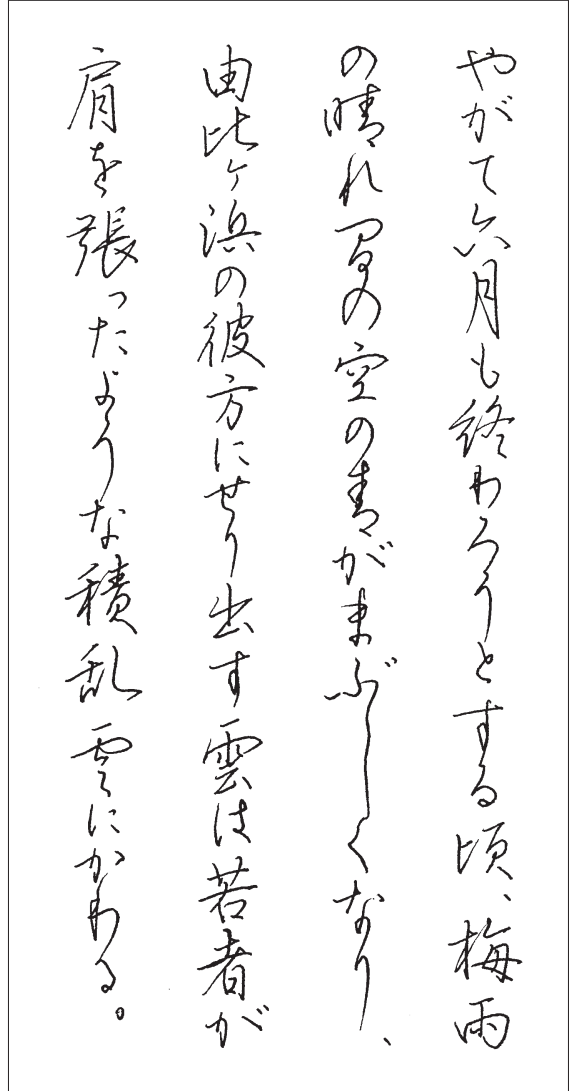 やがて六月も終わろうとする頃、梅雨
の晴れ間の空の青がまぶしくなり、
由比ヶ浜の彼方にせり出す雲は若者が
肩を張ったような積乱雲にかわる。